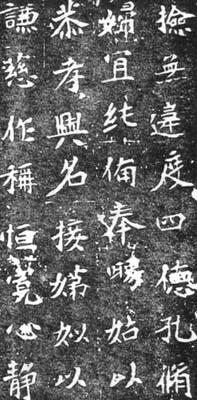 撿無違度四德孔脩
婦宜純備奉舅姑以
恭孝興名接娣姒以
謙慈作稱恒寬心静